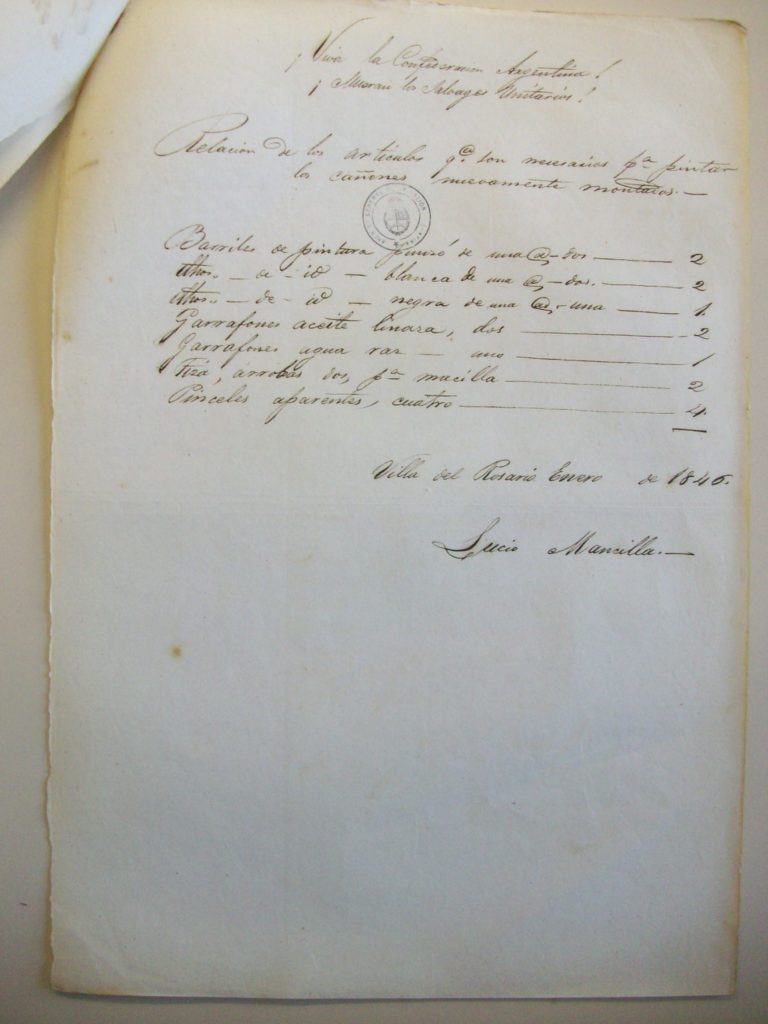 ¡Viva la Confederacion Argentina!
¡Mueran los Salvages Unitarios!
Relacion de los articulos qe. son necesarios pa. pintar
los cañones nuevamente montados.—
Barriles de pintura punzó de una @-dos — 2
Ythos.. — de - id — blanca de una @, - dos. — 2
Ythos.. — de - id — negra de una @, - una — 1.
Garrafones aceite linaza, dos — 2
Garrafones agua raz — uno — 1
Tiza, arrobas dos, pa. macilla — 2
Pinceles aparentes, cuatro — 4.
Villa del Rosario Enero de 1846.
Lucio Mancilla.—